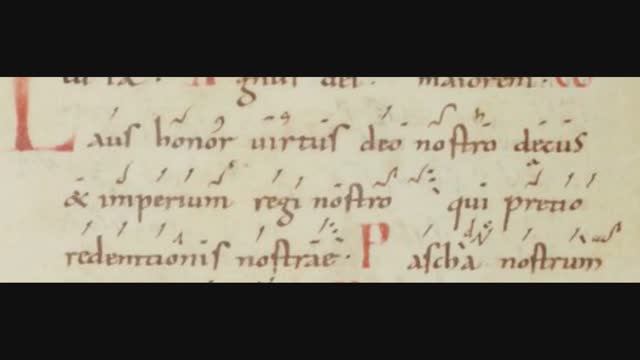 A gnus dei maiorem
Laus honor virtus deo nostro decus
& imperium regi nostro qui pretio
redemtionis nostrae. Pascha nostrum